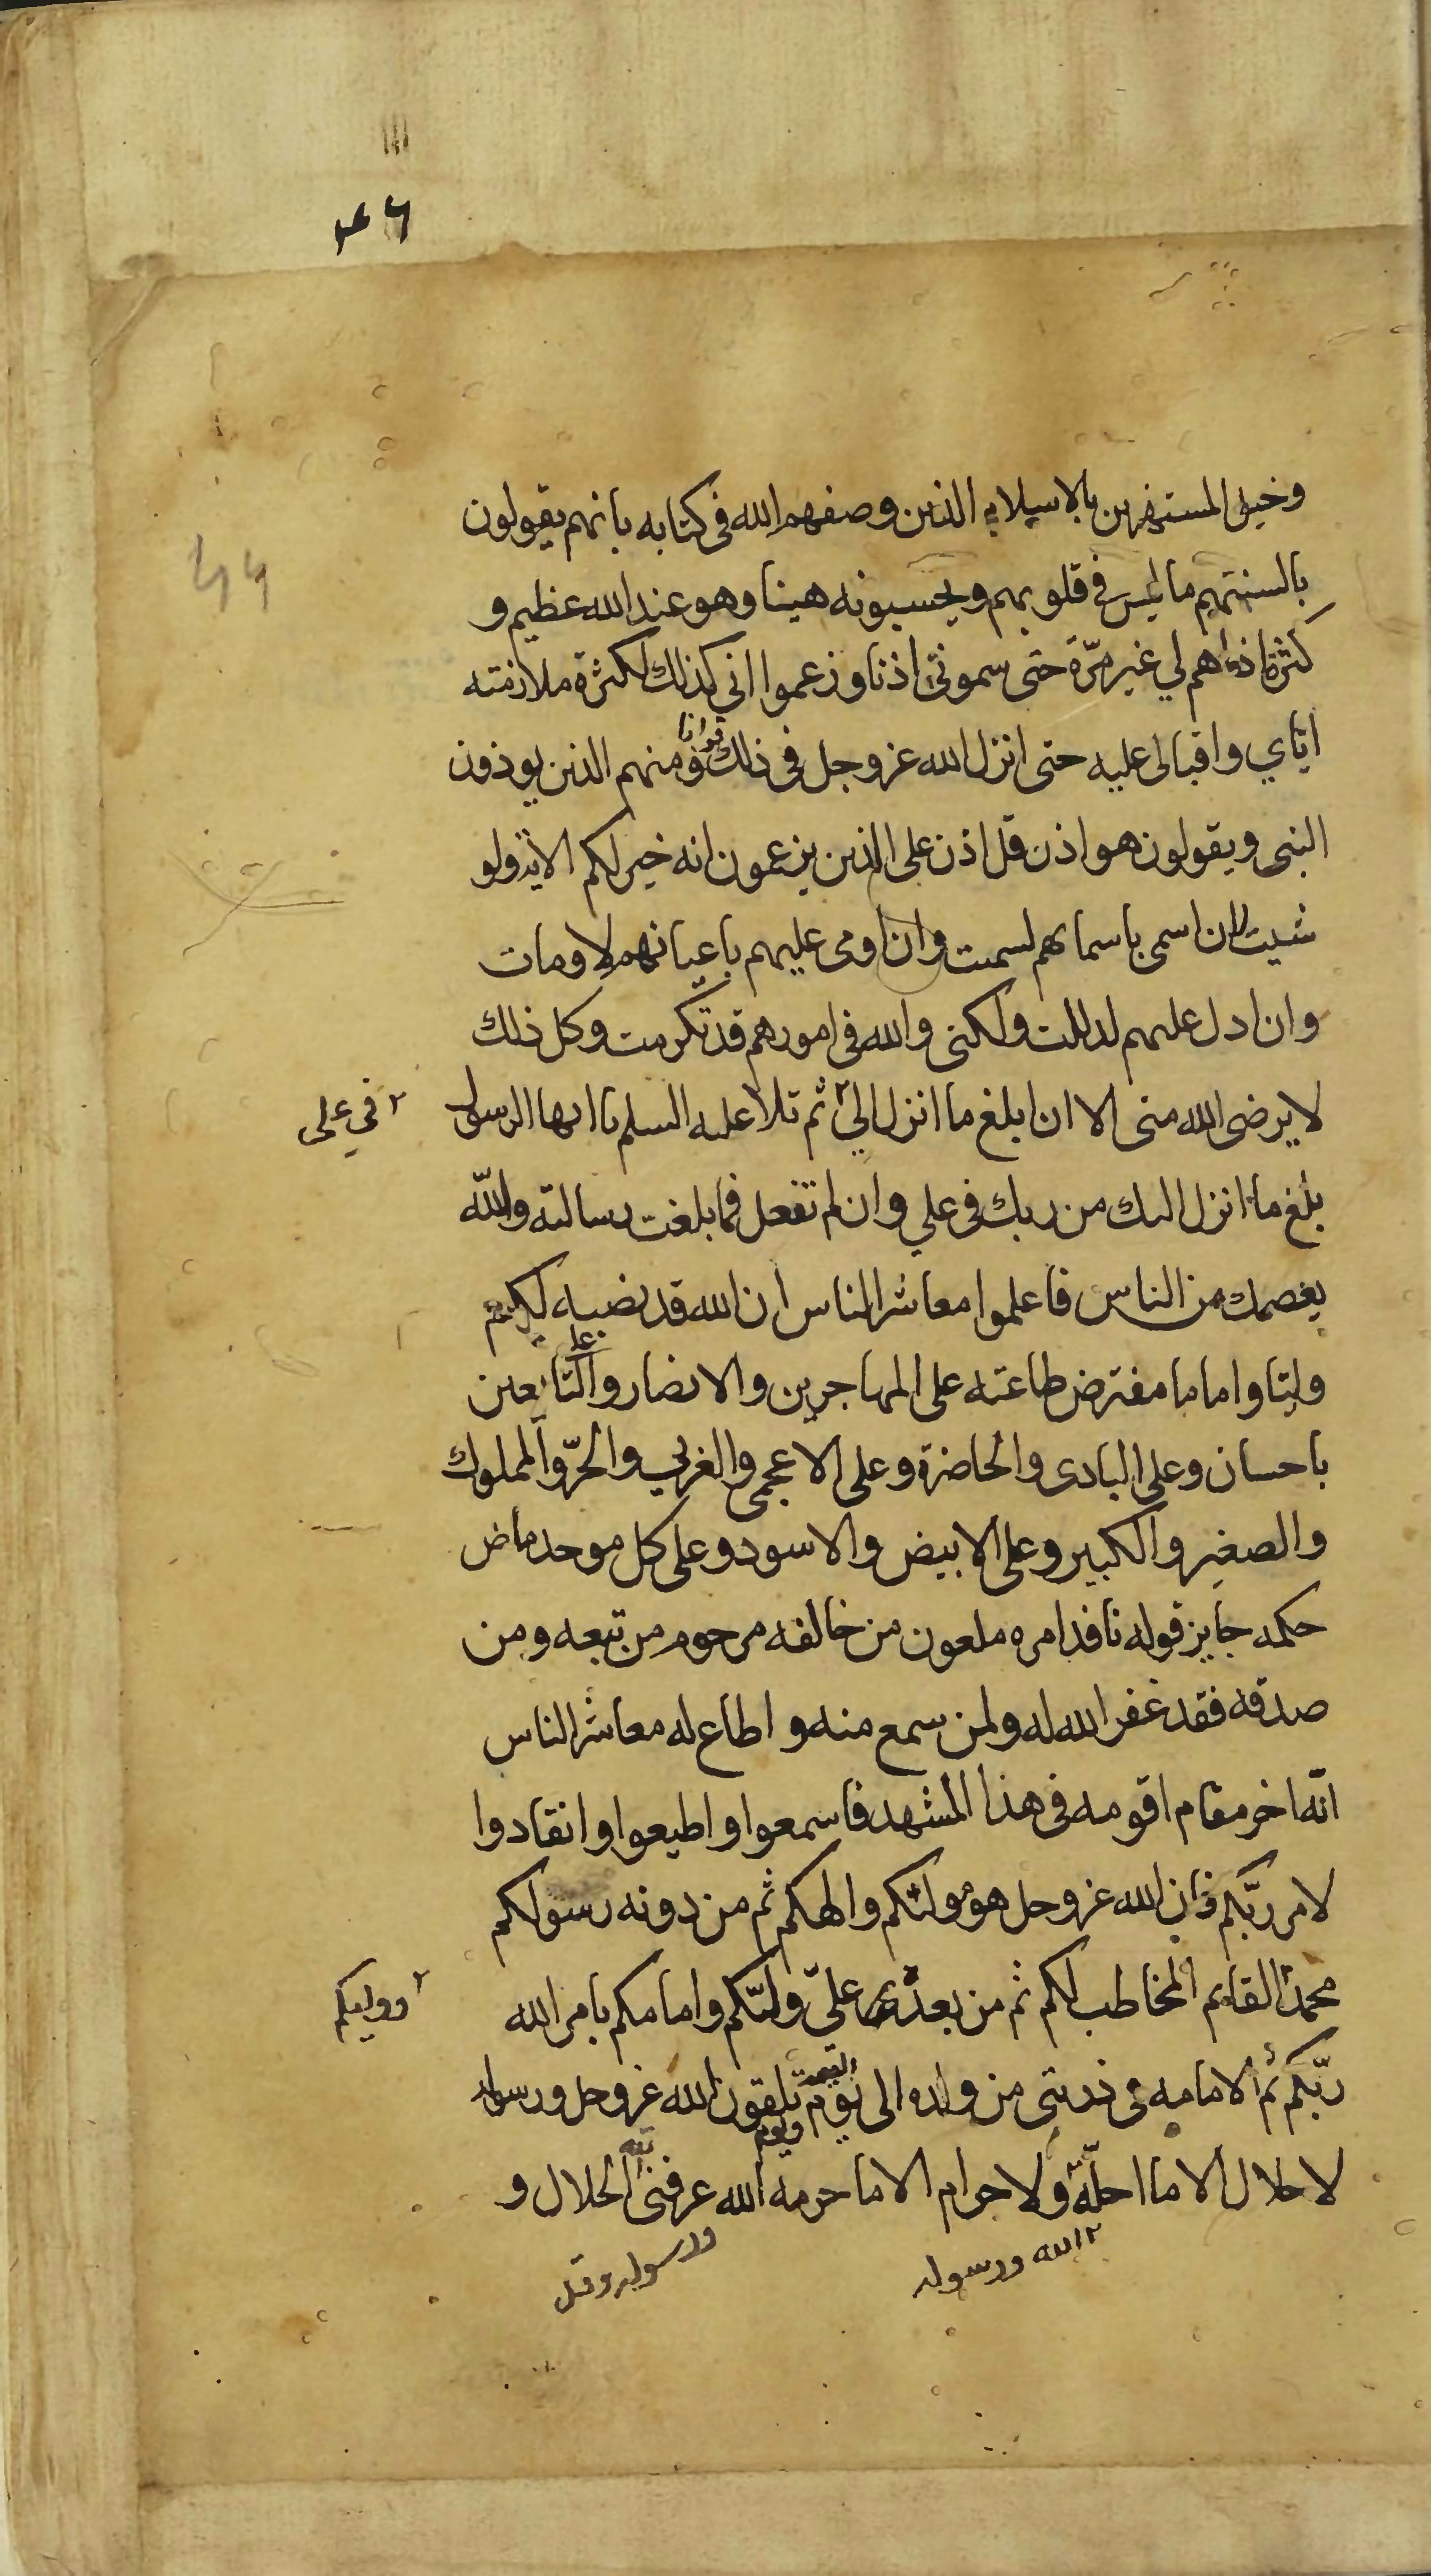 وخيل المستهزءين بالاسلام الذين وصفهم الله فى كتابه بانهم يقولون
بالسنتهم ما ليس في قلوبهم ويحسبونه هينا وهو عند الله عظيم و
كثرة اذاهم لي غير مرّة حتى سمونى اذنا وزعموا اني كذلك لكثرة ملازمته
ايّاي واقبالى عليه حتى انزل الله عزوجل فى ذلك قرانا ومنهم الذين يوذون
النبى ويقولون هو اذن قل اذن على الذين يزعمون انه خير لكم الاية ولو
شيت ان اسمى باسمايهم لسميت وان اومى عليهم باعيانهم لاومات
وان ادل عليهم لدللت ولكنى والله فى امورهم قد تكرمت وكل ذلك
لا يرضى الله منى الا ان ابلغ ما انزل الىّ ٢ ثم تلا عليه السلم يا ايها الرسول
٢ في على
بلغ ما انزل اليك من ربك فى علي وان لم تفعل فما بلغت رسالته والله
يعصمك من الناس فاعلموا معاشر الناس ان الله قد نصبه لكم
وليّا واماما مفترض طاعته على المهاجرين والانصار وعلى التابعين
باحسان وعلى البادى والحاضرة وعلى الاعجمى والعربي والحرّ والمملوك
والصغير والكبير وعلى الابيض والاسود وعلى كل موحد ماض
حكمه جايز قوله نافذ امره ملعون من خالفه مرحوم من تبعه ومن
صدقه فقد غفر الله له ولمن سمع منه واطاع له معاشر الناس
انّه اخر مقام اقومه فى هذا المشهد فاسمعوا واطيعوا وانقادوا
لامر ربّكم فان الله عزوجل هو موليكم والهكم ثم من دونه رسولكم
محمد القايم المخاطب لكم ثم من بعدى علىّ وليّكم وامامكم بامر الله
٢ ووليكم
ربّكم ثم الامامه فى ذريتى من ولده الى يوم القيمه ويوم تلقون الله عزوجل ورسوله
لا حلال الا ما احلّه ولا حرام الا ما حرمه الله عرفنى الله الحلال و
٢ الله ورسوله
ورسوله وقد